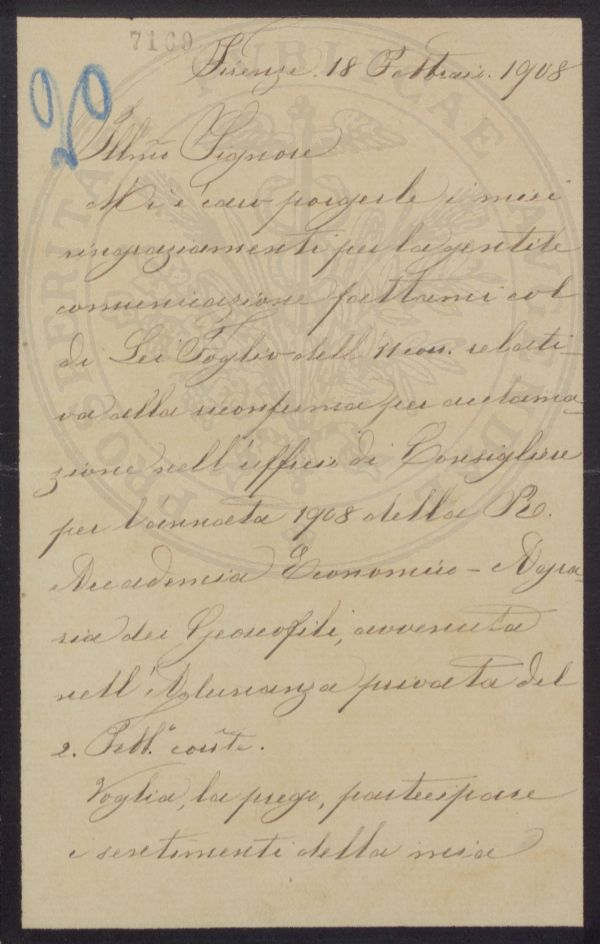 7169
Firenze. 18 Febbraio. 1908
20
Illmo Signore
Mi è caro porgerle i miei
ringraziamenti per la gentile
comunicazione fattami col
di Lei Foglio dell' 11 corr. relati-
va alla riconferma per acclama-
zione nell'ufficio di Consigliere
per l'annata 1908 della R.
Accademia Economico-Agra-
ria dei Georgofili, avvenuta
nell'Adunanza privata del
2. Febb.º corrte.
Voglia, la prego, partecipare
i sentimenti della mia
PROSPERITATI PUBLICAE AUGENDAE